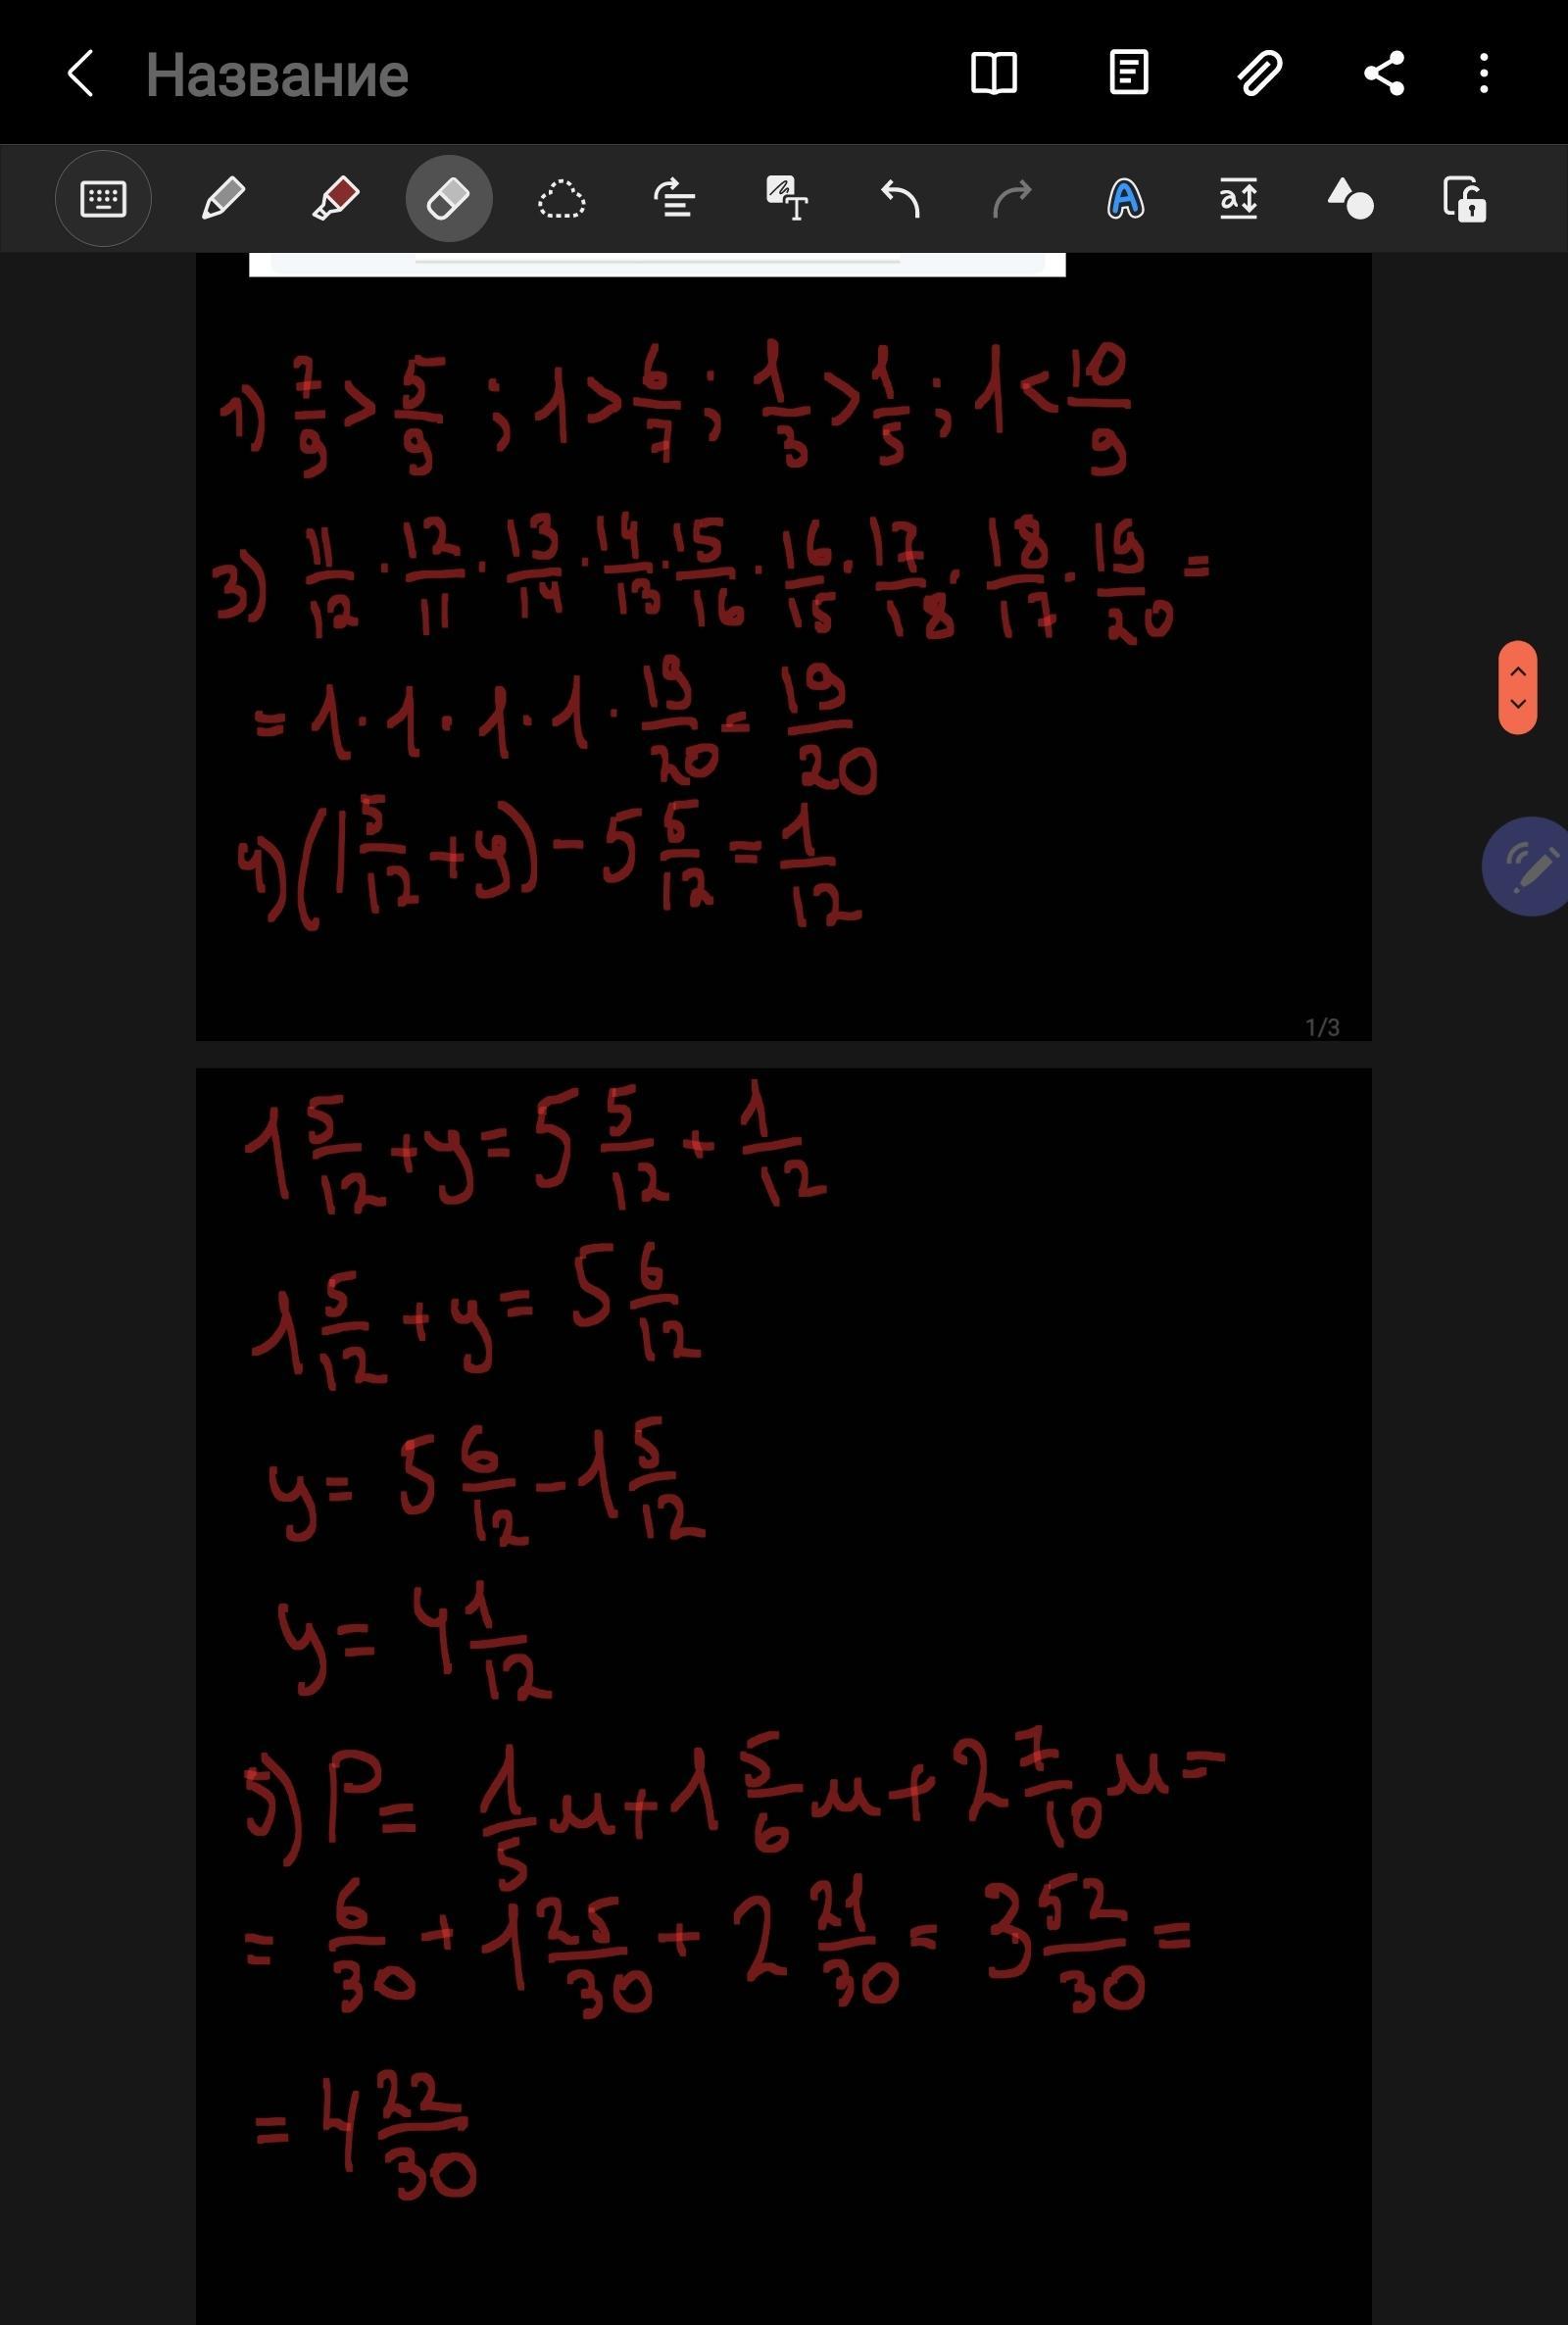 Название
1) 7/9 > 5/9 ; 1 > 6/7 ; 1/3 > 1/5 ; 1 < 10/9
3) 11/12 · 12/11 · 13/14 · 14/13 · 15/16 · 16/15 · 17/18 · 18/17 · 19/20 =
= 1 · 1 · 1 · 1 · 19/20 = 19/20
4) (1 5/12 + y) - 5 5/12 = 1/12
1/3
1 5/12 + y = 5 5/12 + 1/12
1 5/12 + y = 5 6/12
y = 5 6/12 - 1 5/12
y = 4 1/12
5) P = 1/5 м + 1 5/6 м + 2 7/10 м =
= 6/30 + 1 25/30 + 2 21/30 = 3 52/30 =
= 4 22/30